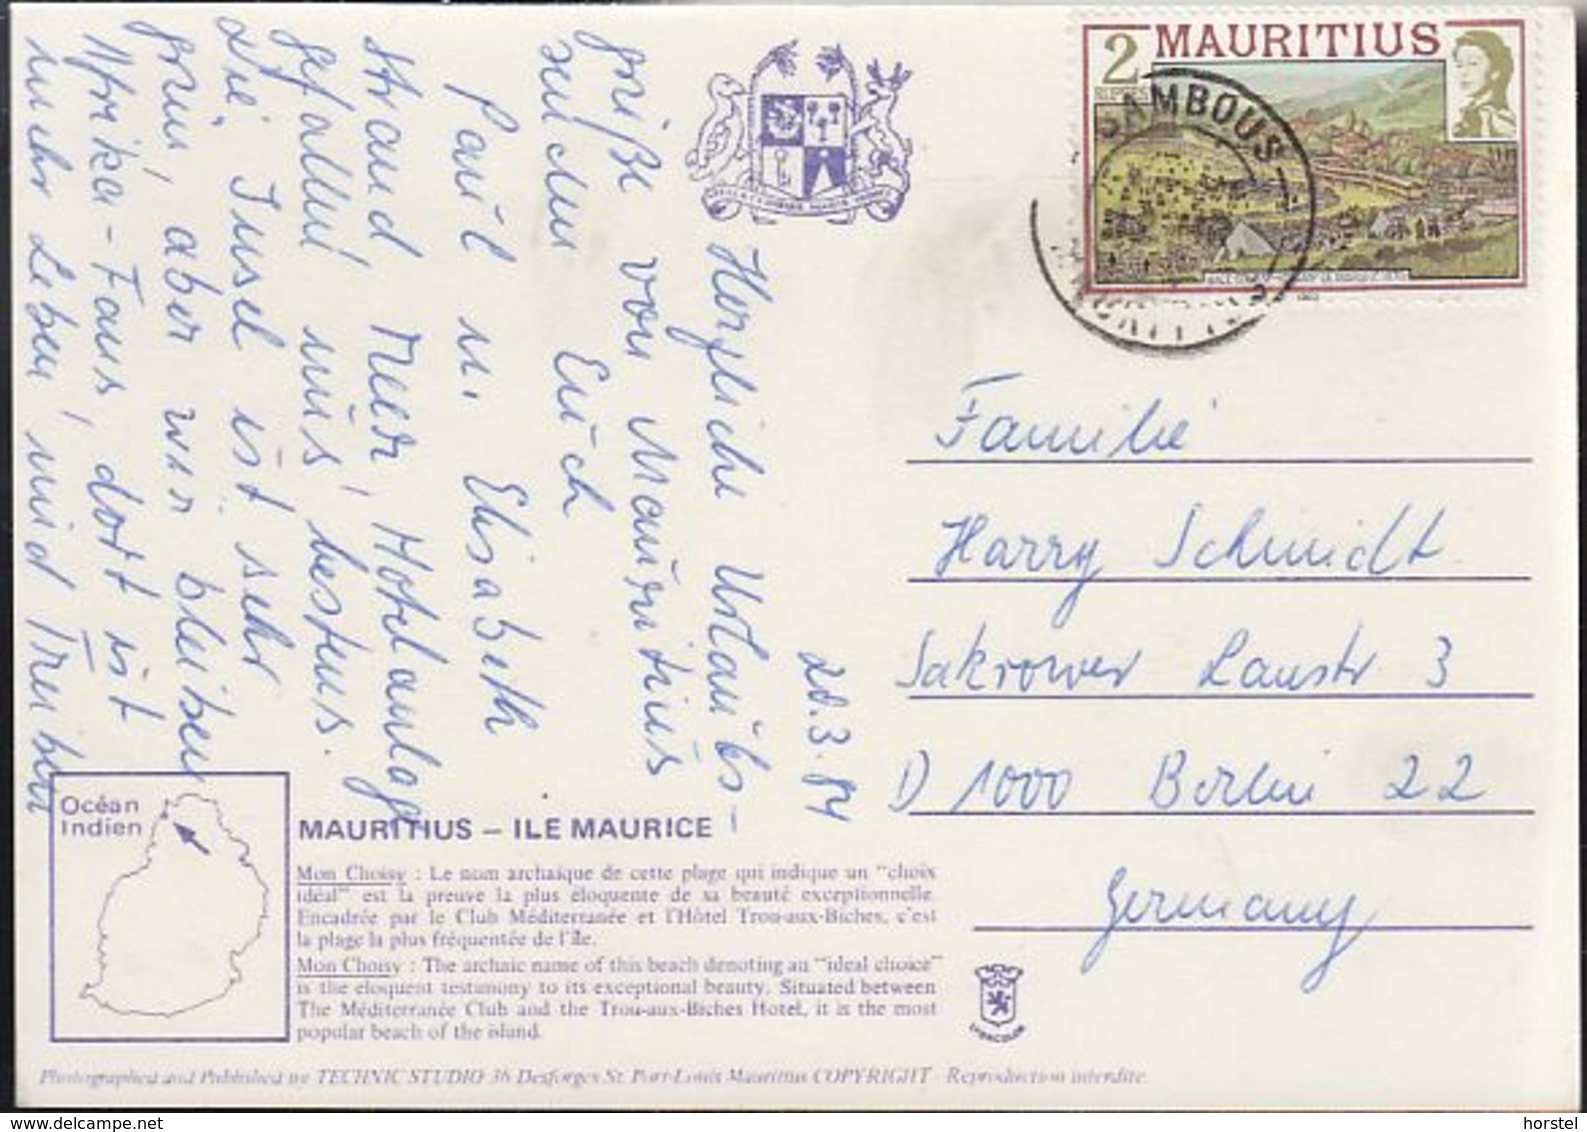 2 MAURITIUS
RUPEES
BAMBOUS
MAURITIUS
28.3.84
Herzliche Urlaubs-
grüße von Mauritius
senden Euch
Paul u. Elisabeth
Strand, Meer, Hotelanlage
gefallen uns bestens.
Die Insel ist sehr
grün, aber wir bleiben
Afrika-Fans, dort ist
mehr Leben, und Trouble
Familie
Harry Schmidt
Sakrower Lanstr 3
D 1000 Berlin 22
Germany
Océan
Indien
MAURITIUS – ILE MAURICE
Mon Choisy : Le nom archaïque de cette plage qui indique un "choix
idéal" est la preuve la plus éloquente de sa beauté exceptionnelle.
Encadrée par le Club Méditerranée et l'Hôtel Trou-aux-Biches, c'est
la plage la plus fréquentée de l'île.
Mon Choisy : The archaic name of this beach denoting an "ideal choice"
is the eloquent testimony to its exceptional beauty. Situated between
The Méditerranée Club and the Trou-aux-Biches Hotel, it is the most
popular beach of the island.
Photographed and Published by TECHNIC STUDIO 36 Desforges St. Port-Louis Mauritius COPYRIGHT - Reproduction interdite.
delcampe.net
horstel